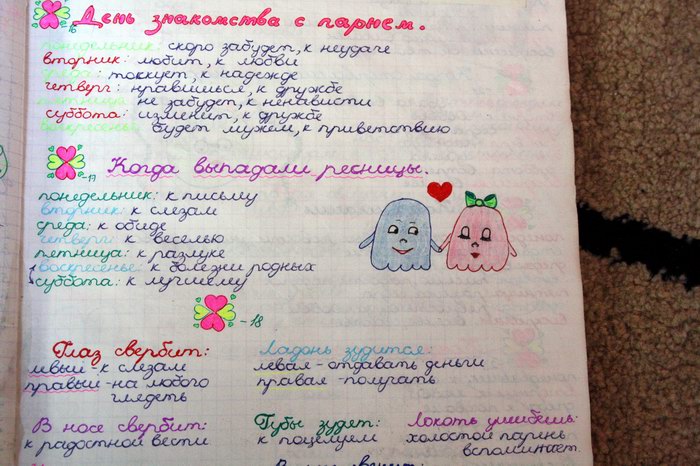 16
День знакомства с парнем.
понедельник: скоро забудет, к неудаче
вторник: любит, к любви
среда: тоскует, к надежде
четверг: нравишься, к дружбе
пятница: не забудет, к ненависти
суббота: изменит, к дружбе
воскресенье: будет мужем, к приветствию
-17
Когда выпадали ресницы.
понедельник: к письму
вторник: к слезам
среда: к обиде
четверг: к веселью
пятница: к разлуке
воскресенье: к болезни родных
суббота: к лучшему
-18
Глаз свербит:
левый - к слезам
правый - на любого
глядеть
Ладонь зудится:
левая - отдавать деньги
правая - получать
В носе свербит:
к радостной вести
Губы зудят:
к поцелуем
Локоть ушибешь:
холостой парень
вспоминает.